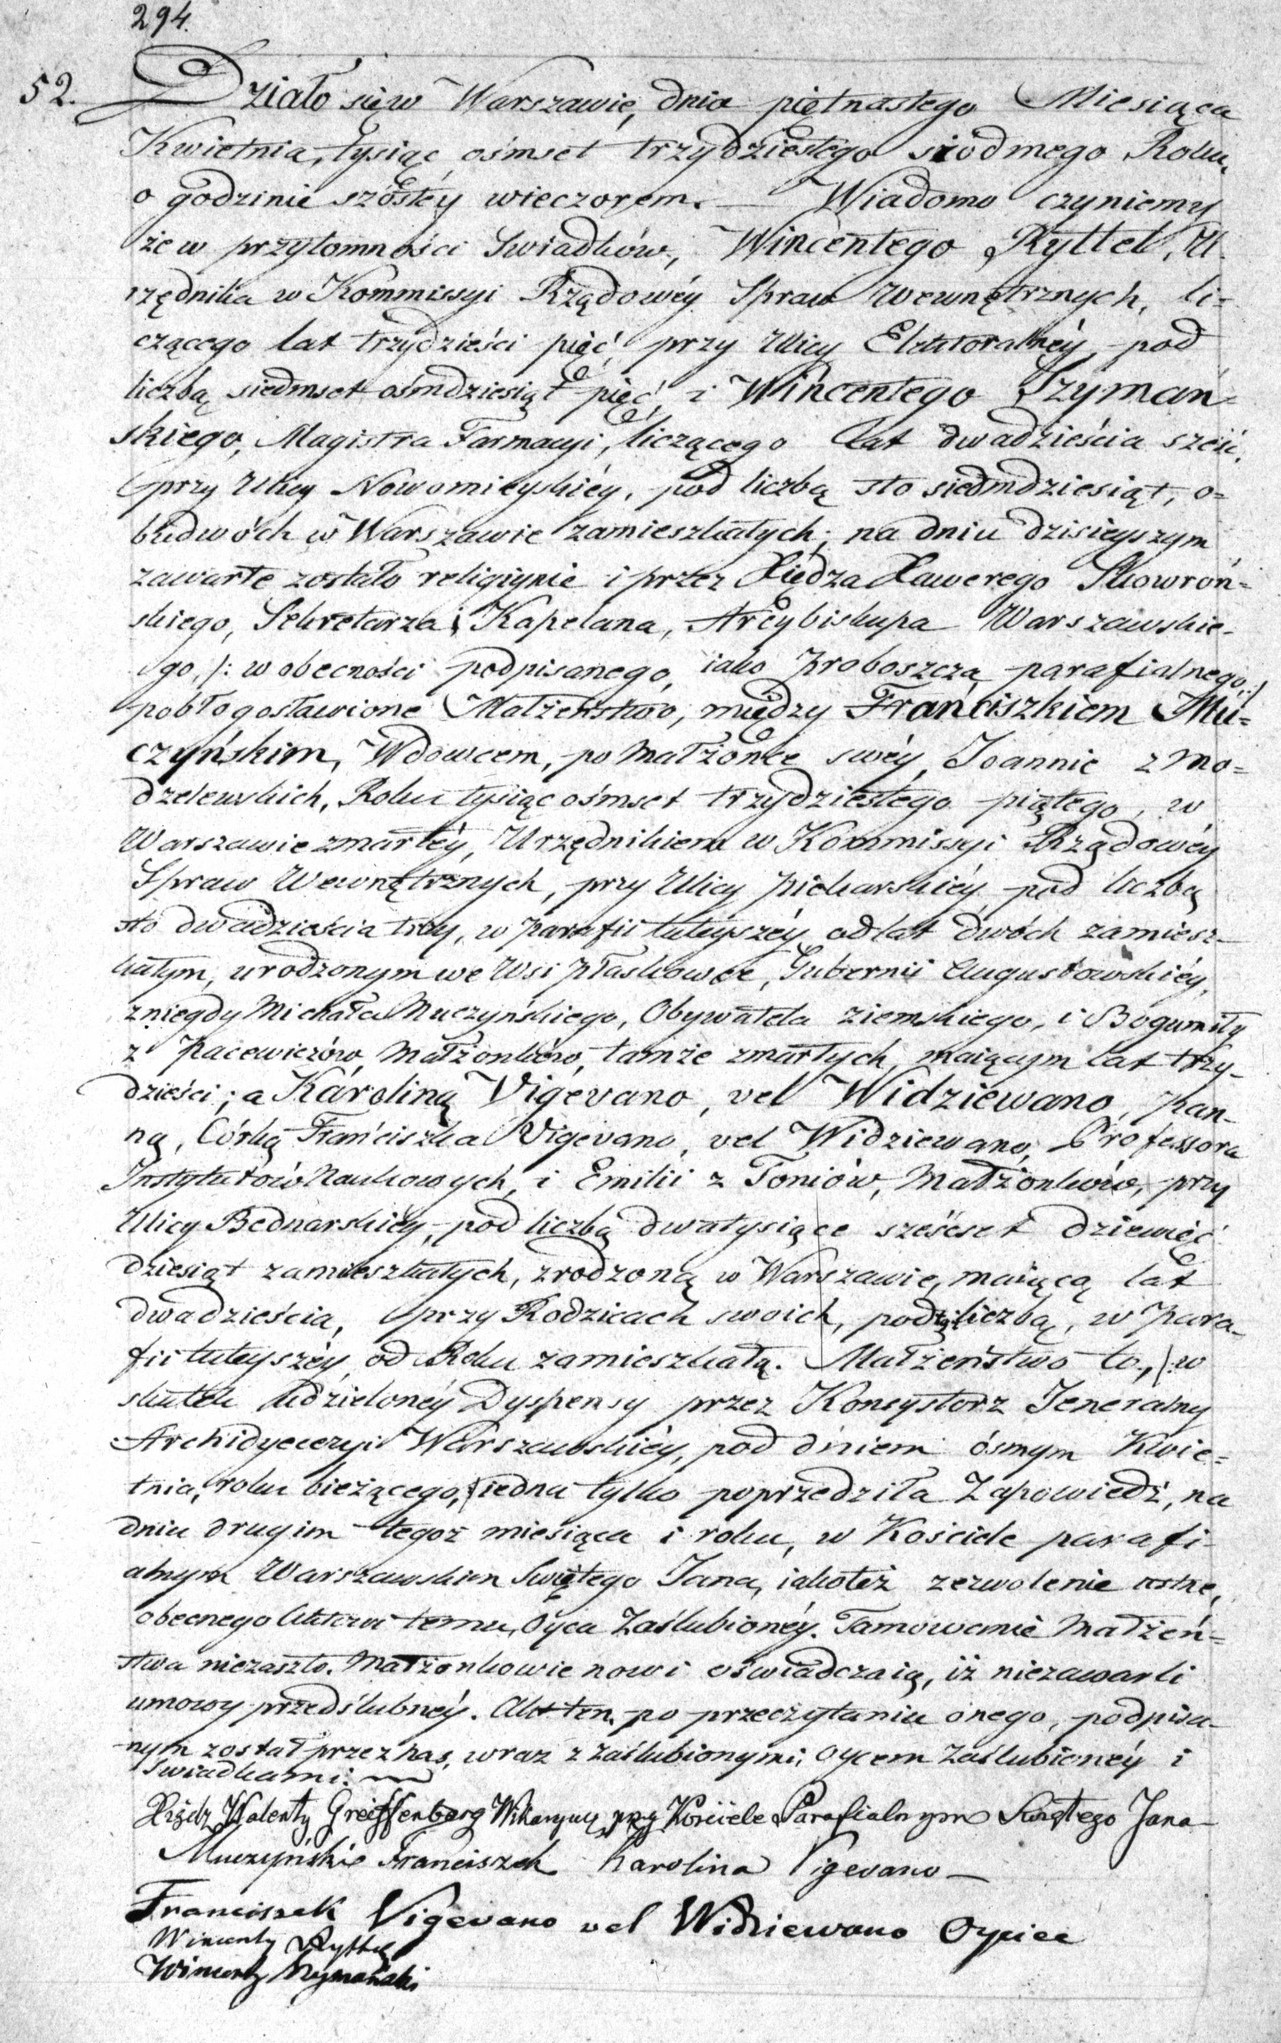 294.
52. Działo się w Warszawie, dnia piętnastego Miesiąca
Kwietnia, tysiąc ośmset trzydziestego siódmego Roku,
o godzinie szóstéy wieczorem. — Wiadomo czyniemy
że w przytomności Swiadków, Wincentego Ryttel, U-
rzędnika w Kommissyi Rządowéy Spraw Wewnętrznych, li-
czącego lat trzydzieści pięć, przy Ulicy Elektoralnéy pod
liczbą siedmset ośmdziesiąt pięć i Wincentego Szymań-
skiego, Magistra Farmacyi, liczącego lat dwadzieścia sześć,
przy Ulicy Nowomieyskiéy, pod liczbą sto siedmdziesiąt, o-
budwóch w Warszawie zamieszkałych; na dniu dzisieyszym
zawarte zostało religiynie i przez Xiędza Xawerego Skowroń-
skiego, Sekretarza i Kapelana, Arcybiskupa Warszawskie-
go, /: w obecności podpisanego, iako Proboszcza parafialnego,:/
pobłogosławione Małżeństwo, między Franciszkiem Mu-
czyńskim, Wdowcem, po Małżonce swéy, Joannie z Mo-
dzelewskich, Roku tysiąc ośmset trzydziestego piątego, w
Warszawie zmarłéy, Urzędnikiem w Kommissyi Rządowéy
Spraw Wewnętrznych, przy Ulicy Piekarskiéy pod liczbą
sto dwadzieścia trzy, w Parafii tuteyszéy od lat dwóch zamiesz-
kałym, urodzonym we Wsi Płaskowce, Gubernii Augustowskiéy,
z niegdy Michała Muczyńskiego, Obywatela ziemskiego, i Bogumiły
z Pacewiczów Małżonków, tamże zmarłych, maiącym lat trzy-
dzieści; a Karoliną Vigevano, vel Widziewano, Pan-
ną, Córką Franciszka Vigevano, vel Widziewano, Professora
Instytutów Naukowych, i Emilii z Toniów, Małżonków, przy
Ulicy Bednarskiéy, pod liczbą dwa tysiące sześćset dziewięć
dziesiąt zamieszkałych, zrodzoną w Warszawie, maiącą lat
dwadzieścia, przy Rodzicach swoich, pod tąż liczbą, w Para-
fii tuteyszéy od Roku zamieszkałą. Małżeństwo to, /: w
skutek udzielonéy Dyspensy przez Konsystorz Jeneralny
Archidyecezyi Warszawskiéy, pod dniem ósmym Kwie-
tnia, roku bieżącego, / iedna tylko poprzedziła Zapowiedź, na
dniu drugim tegoż miesiąca i roku, w Kościele parafi-
alnym Warszawskim Świętego Jana, iakoteż zezwolenie ustne,
obecnego Aktowi temu, Oyca Zaślubionéy. Tamowanie Małżeń-
stwa niezaszło. Małżonkowie nowi oświadczaią, iż niezawarli
umowy przedślubnéy. Akt ten po przeczytaniu onego, podpisa-
nym został przez nas, wraz z zaślubionymi, Oycem Zaślubionéy i
Swiadkami.
Xiądz Walenty Greiffenberg Wikaryusz przy Kościele Parafialnym Świętego Jana
Muczyński Franciszek Karolina Vigevano —
Franciszek Vigevano vel Widziewano Oyciec
Wincenty Ryttel
Wincenty Szymański